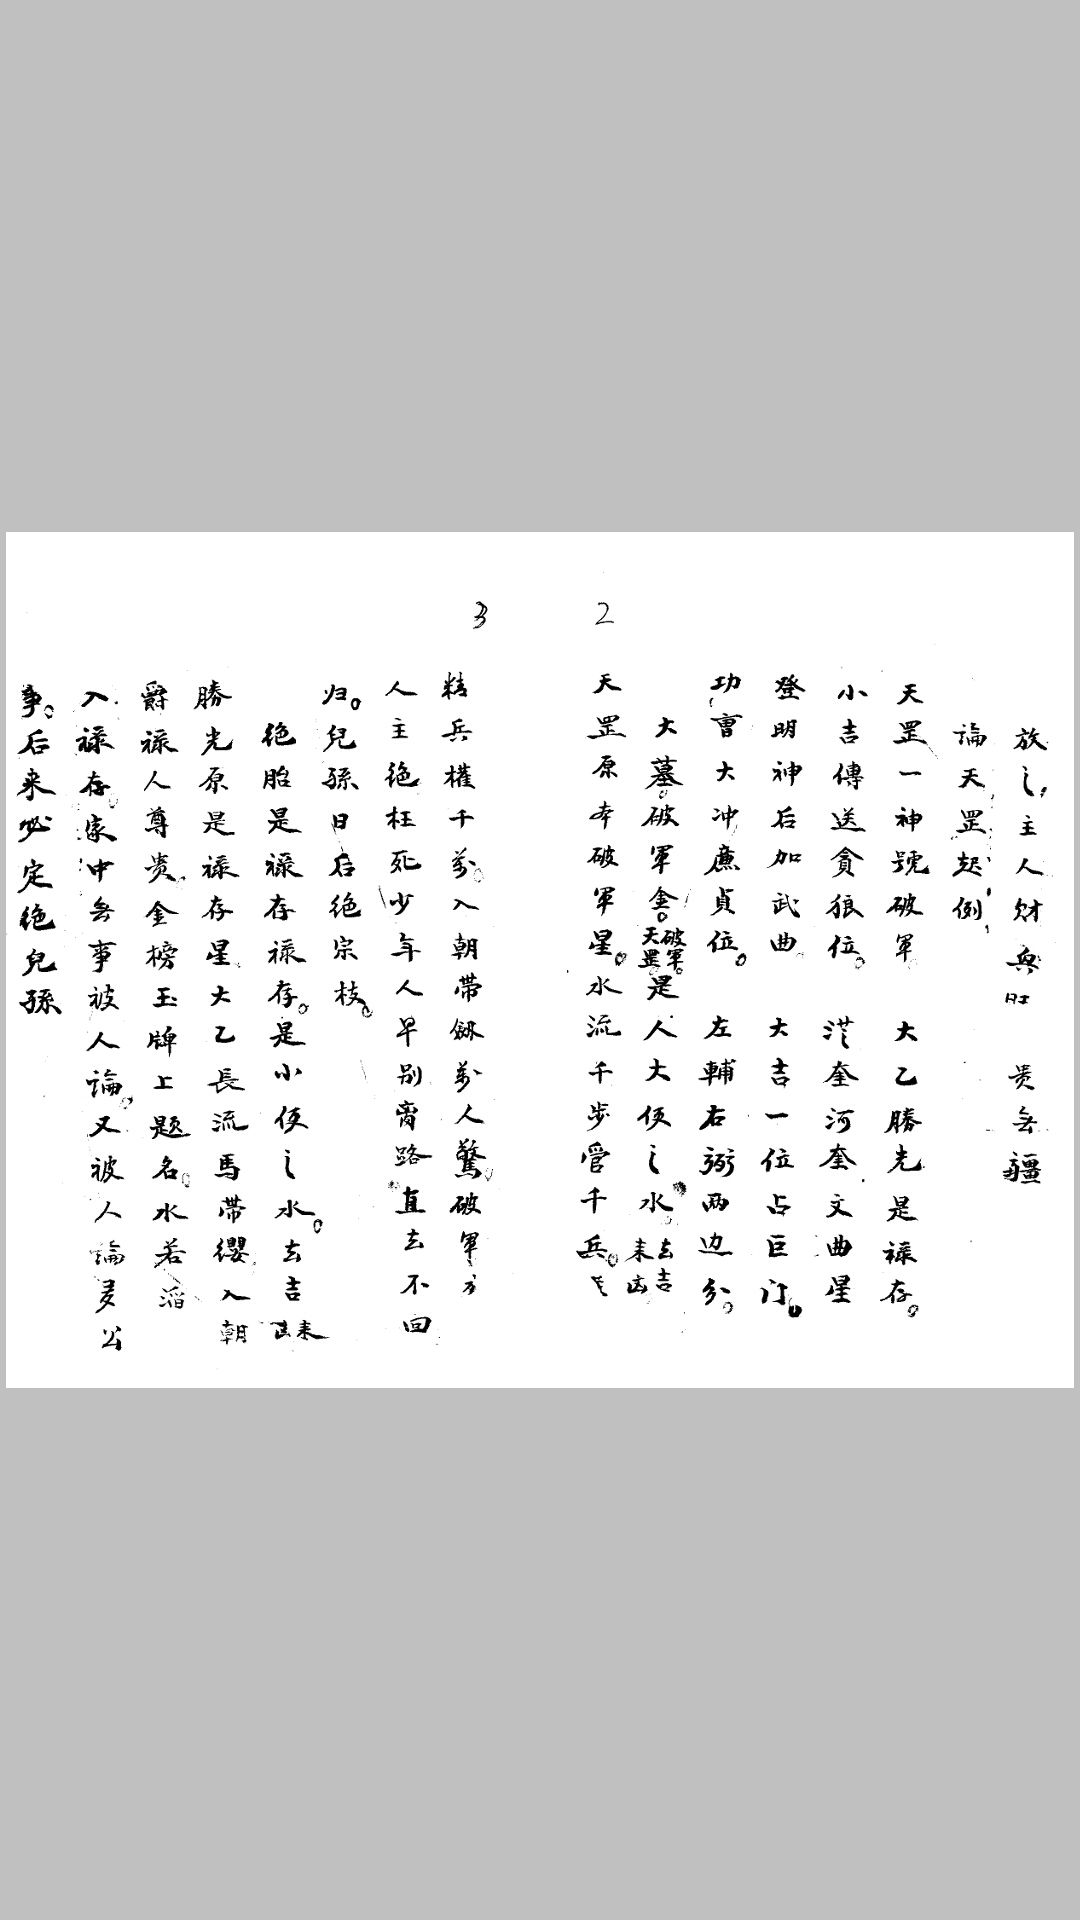 2
放之主人財與旺 贵無疆
論天罡起例
天罡一神號破軍 大乙勝光是禄存
小吉傳送貪狼位 從奎河奎文曲星
登明神后加武曲 大吉一位占巨门
功曹大冲廉貞位 左輔右弼两边分
大墓破軍金天罡破軍是人大便之水去吉来凶
天罡原本破軍星水流千步管千兵
3
精兵權千萬入朝帶劔萬人驚破軍方
人主绝枉死少年人早别离路直去不回
归兒孫日后绝宗枝
绝胎是禄存禄存是小便之水去吉来凶
勝光原是禄存星大乙長流馬帶纓入朝
爵禄人尊贵金榜玉牌上题名水若滔
入禄存家中無事被人論又被人論多公
事后来必定绝兒孫